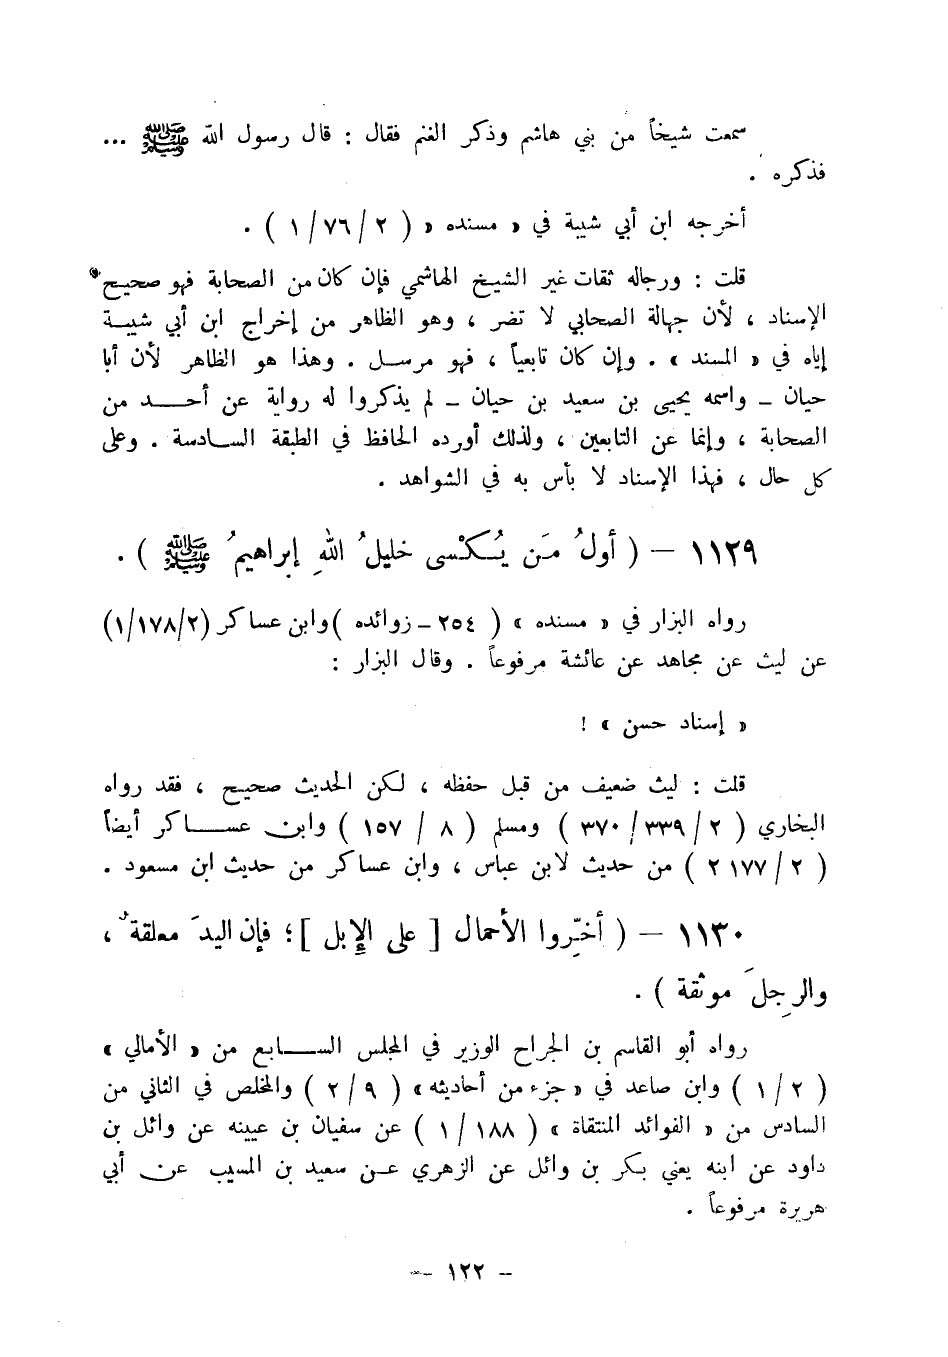 سمعت شيخاً من بني هاشم وذكر الغنم فقال : قال رسول الله ﷺ ...
فذكره .
أخرجه ابن أبي شيبة في « مسنده « ( ٢ /٧٦/ ١ ) .
قلت : ورجاله ثقات غير الشيخ الهاشمي فإن كان من الصحابة فهو صحيح
الإسناد ، لأن جهالة الصحابي لا تضر ، وهو الظاهر من إخراج ابن أبي شيبة
إياه في « المسند » . وإن كان تابعياً ، فهو مرسل . وهذا هو الظاهر لأن أبا
حيان ـ واسمه يحيى بن سعيد بن حيان ـ لم يذكروا له رواية عن أحد من
الصحابة ، وإنما عن التابعين ، ولذلك أورده الحافظ في الطبقة السادسة . وعلى
كل حال ، فهذا الإسناد لا بأس به في الشواهد .
١١٢٩ – ( أولُ مَن يُكْسى خليلُ اللهِ إبراهيمُ ﷺ ) .
رواه البزار في « مسنده » ( ٢٥٤ ـ زوائده )وابن عساكر (١/١٧٨/٢)
عن ليث عن مجاهد عن عائشة مرفوعاً . وقال البزار :
« إسناد حسن » !
قلت : ليث ضعيف من قبل حفظه ، لكن الحديث صحيح ، فقد رواه
البخاري ( ٢ /٣٣٩/ ٣٧٠ ) ومسلم ( ٨ / ١٥٧ ) وابن عساكر أيضاً
( ٢ /١٧٧ ٢ ) من حديث لابن عباس ، وابن عساكر من حديث ابن مسعود .
١١٣٠ – ( أخِّروا الأحمال [ على الإبل ]؛ فإن اليدَ معلقةٌ ،
والرِجلَ موثقة ) .
رواه أبو القاسم بن الجراح الوزير في المجلس السابع من « الأمالي »
( ٢ / ١ ) وابن صاعد في « جزء من أحاديثه » ( ٩ / ٢ ) والمخلص في الثاني من
السادس من « الفوائد المنتقاة » ( ١٨٨ / ١ ) عن سفيان بن عيينه عن وائل بن
داود عن ابنه يعني بكر بن وائل عن الزهري عن سعيد بن المسيب عن أبي
هريرة مرفوعاً .
– ١٢٢ –